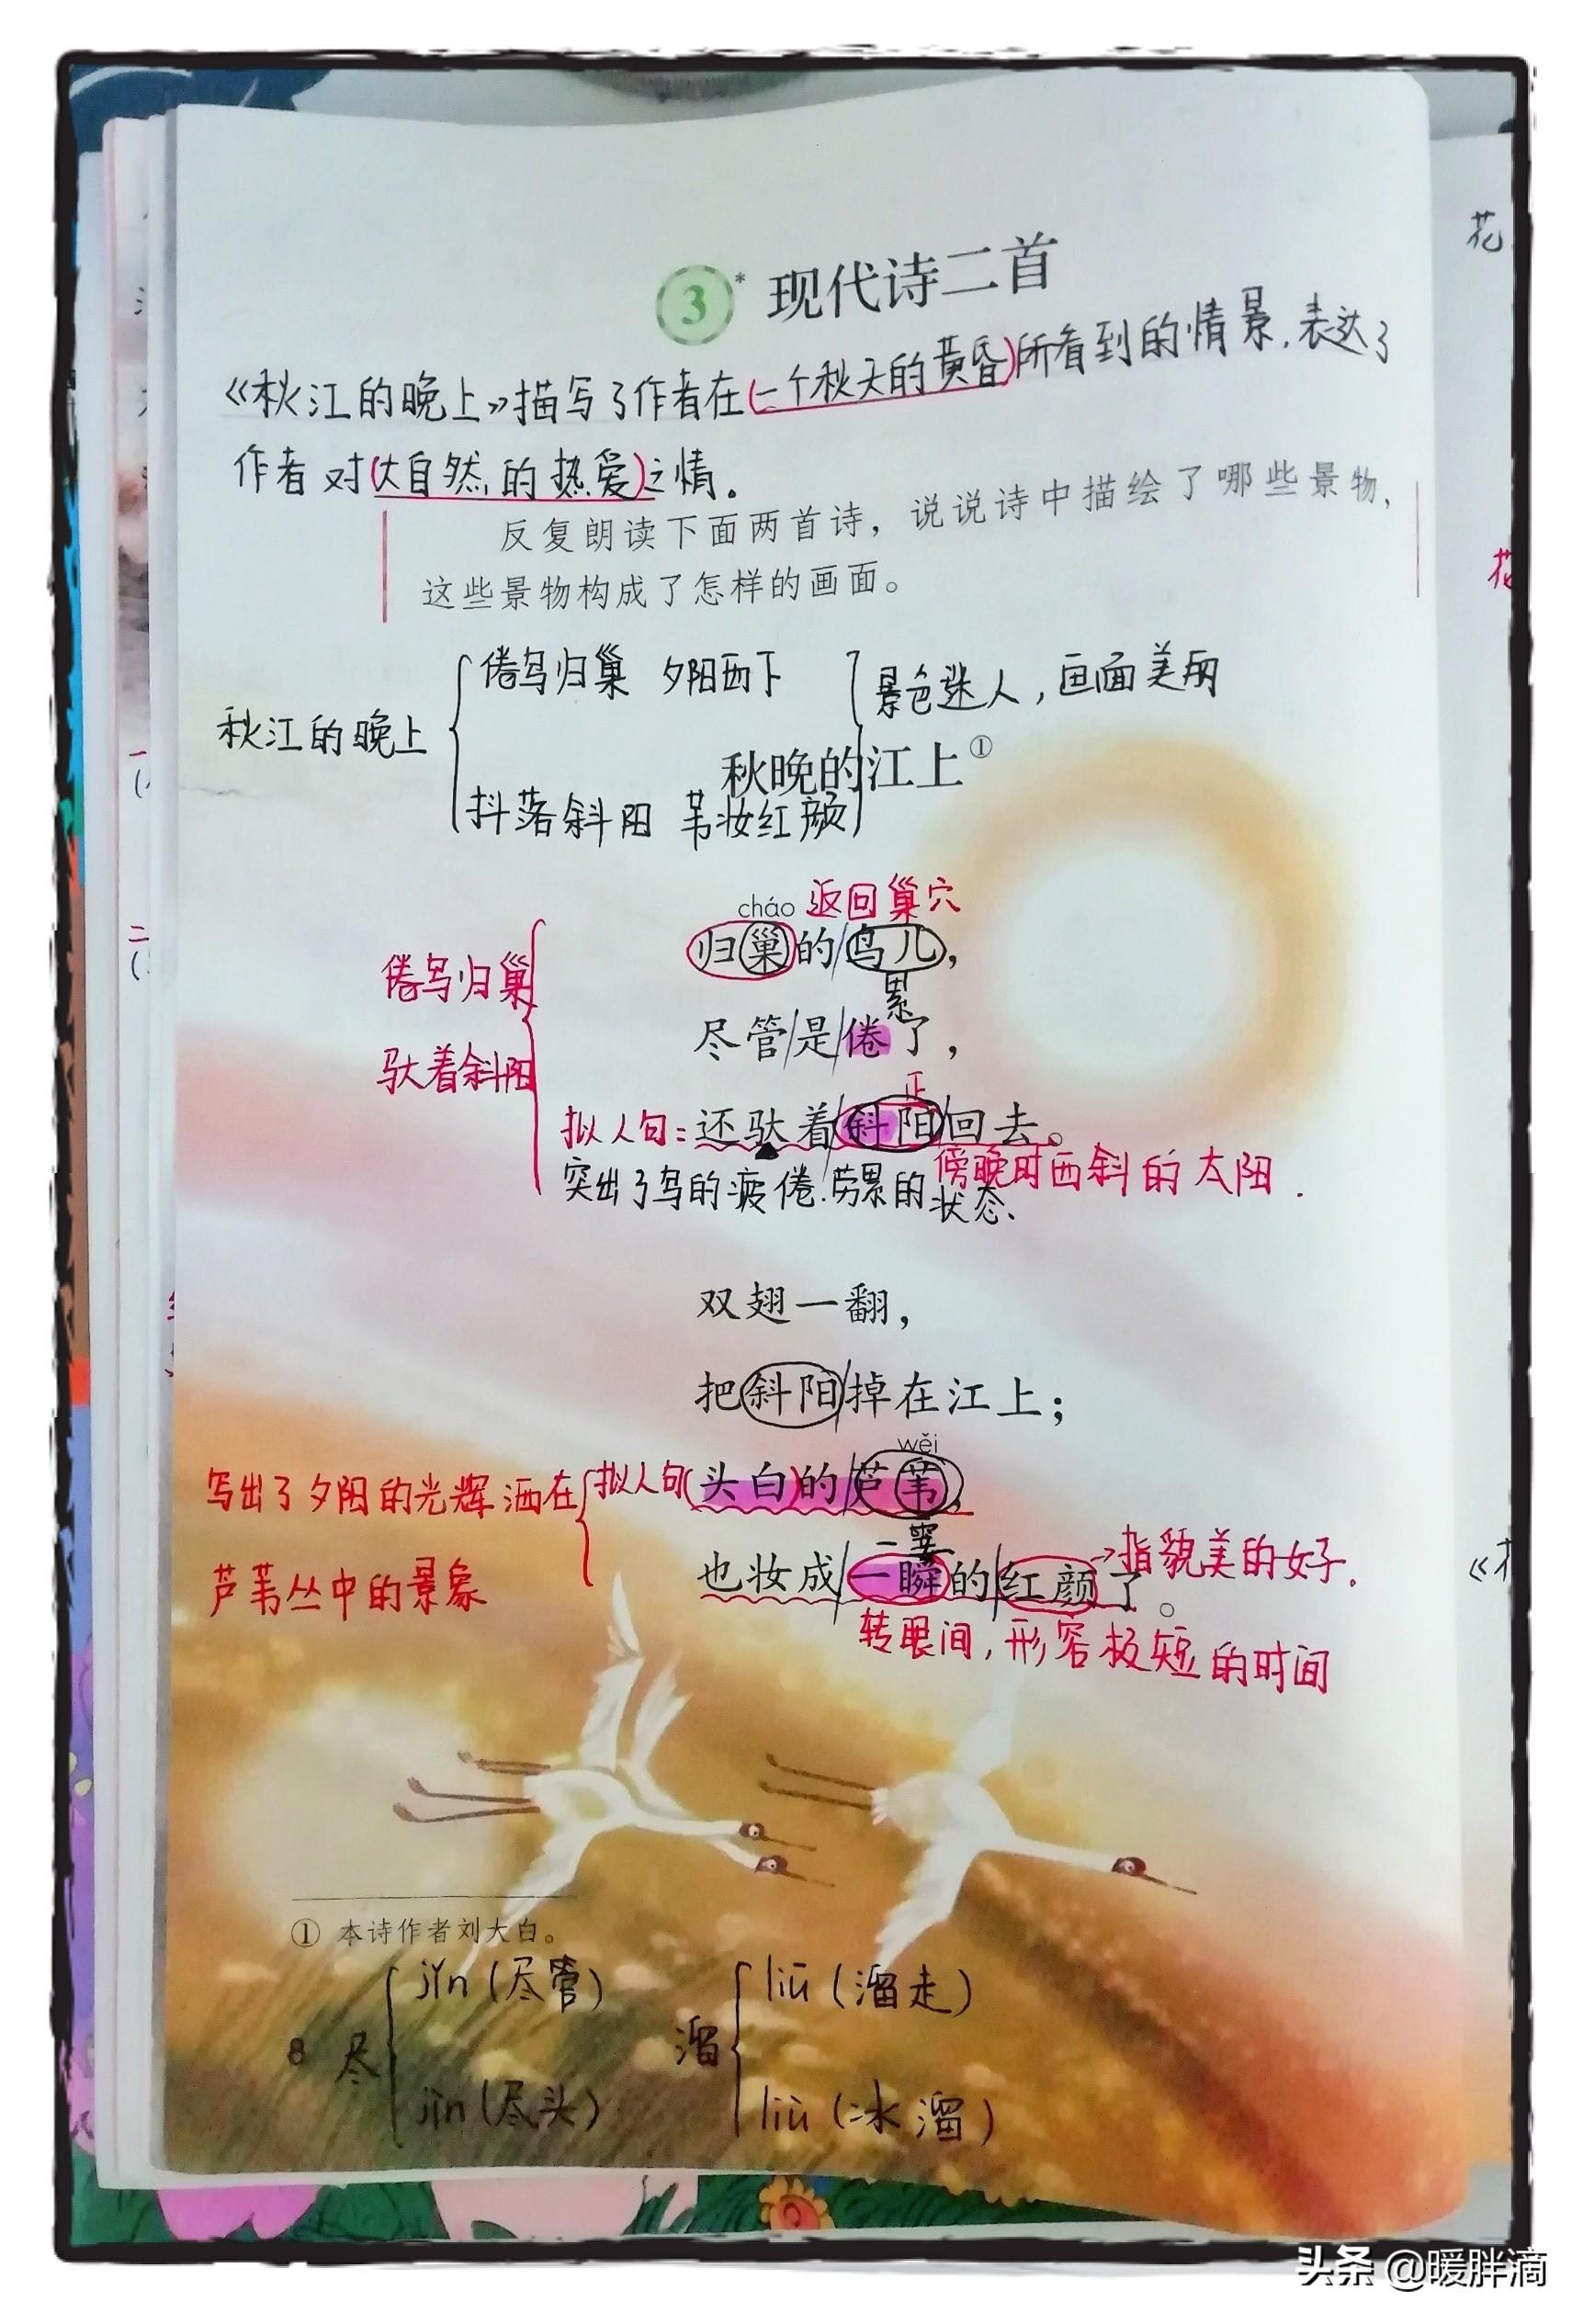 3* 现代诗二首
《秋江的晚上》描写了作者在(一个秋天的黄昏)所看到的情景.表达了
作者对(大自然的热爱)之情。
反复朗读下面两首诗，说说诗中描绘了哪些景物，
这些景物构成了怎样的画面。
倦鸟归巢 夕阳西下
景色迷人，画面美丽
秋江的晚上
秋晚的江上①
抖落斜阳 苇妆红颜
cháo 返回巢穴
归巢的/鸟儿，
倦鸟归巢
累
尽管/是/倦了，
驮着斜阳
正
拟人句：还驮着/斜阳/回去。
傍晚时西斜的太阳.
突出了鸟的疲倦.劳累的状态.
双翅一翻，
把斜阳/掉在江上；
wěi
写出了夕阳的光辉洒在
拟人句(头白)的/芦苇，
芦苇丛中的景象
也妆成/一瞬的/红颜了。
→指貌美的女子.
转眼间，形容极短的时间
① 本诗作者刘大白。
jǐn (尽管)
liū (溜走)
8 尽
溜
jìn (尽头)
liù (冰溜)
花
花
《花
头条 @暖胖滴